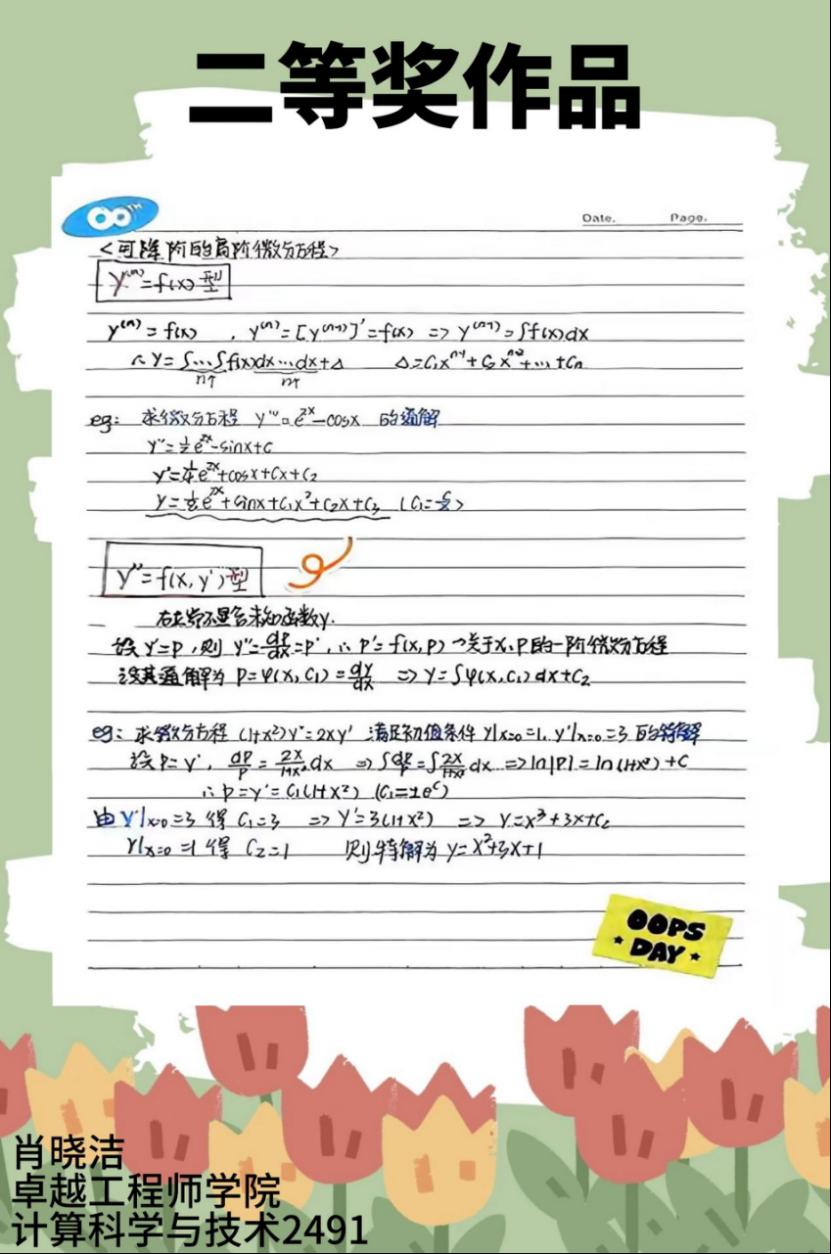 二等奖作品
∞TH
Date. Page.
<可降阶的高阶微分方程>
y⁽ⁿ⁾=f(x)型
y⁽ⁿ⁾=f(x) , y⁽ⁿ⁾=[y⁽ⁿ⁻¹⁾]'=f(x) => y⁽ⁿ⁻¹⁾=∫f(x)dx
∴ y=∫...∫f(x)dx...dx+Δ Δ=C₁xⁿ⁻¹+C₂xⁿ⁻²+...+Cₙ
n个 n个
eg: 求微分方程 y'''=e²ˣ-cosx 的通解
y''=½e²ˣ-sinx+C
y'=¼e²ˣ+cosx+Cx+C₂
y=⅛e²ˣ+sinx+C₁x²+C₂x+C₃ (C₁=C/2)
y''=f(x,y')型
右端不显含未知函数y.
设y'=p,则 y''=dp/dx=p', ∴ p'=f(x,p) →关于x,p的一阶微分方程
设其通解为 p=φ(x,C₁)=dy/dx => y=∫φ(x,C₁)dx+C₂
eg: 求微分方程 (1+x²)y''=2xy' 满足初值条件 y|x=0=1, y'|x=0=3 的特解
设p=y', dp/p=2x/1+x² dx => ∫dp/p=∫2x/1+x² dx => ln|p|=ln(1+x²)+C
∴ p=y'=C₁(1+x²) (C₁=±eᶜ)
由y'|x=0=3 得 C₁=3 => y'=3(1+x²) => y=x³+3x+C₂
y|x=0=1 得 C₂=1 则特解为 y=x³+3x+1
OOPS
DAY
肖晓洁
卓越工程师学院
计算科学与技术2491